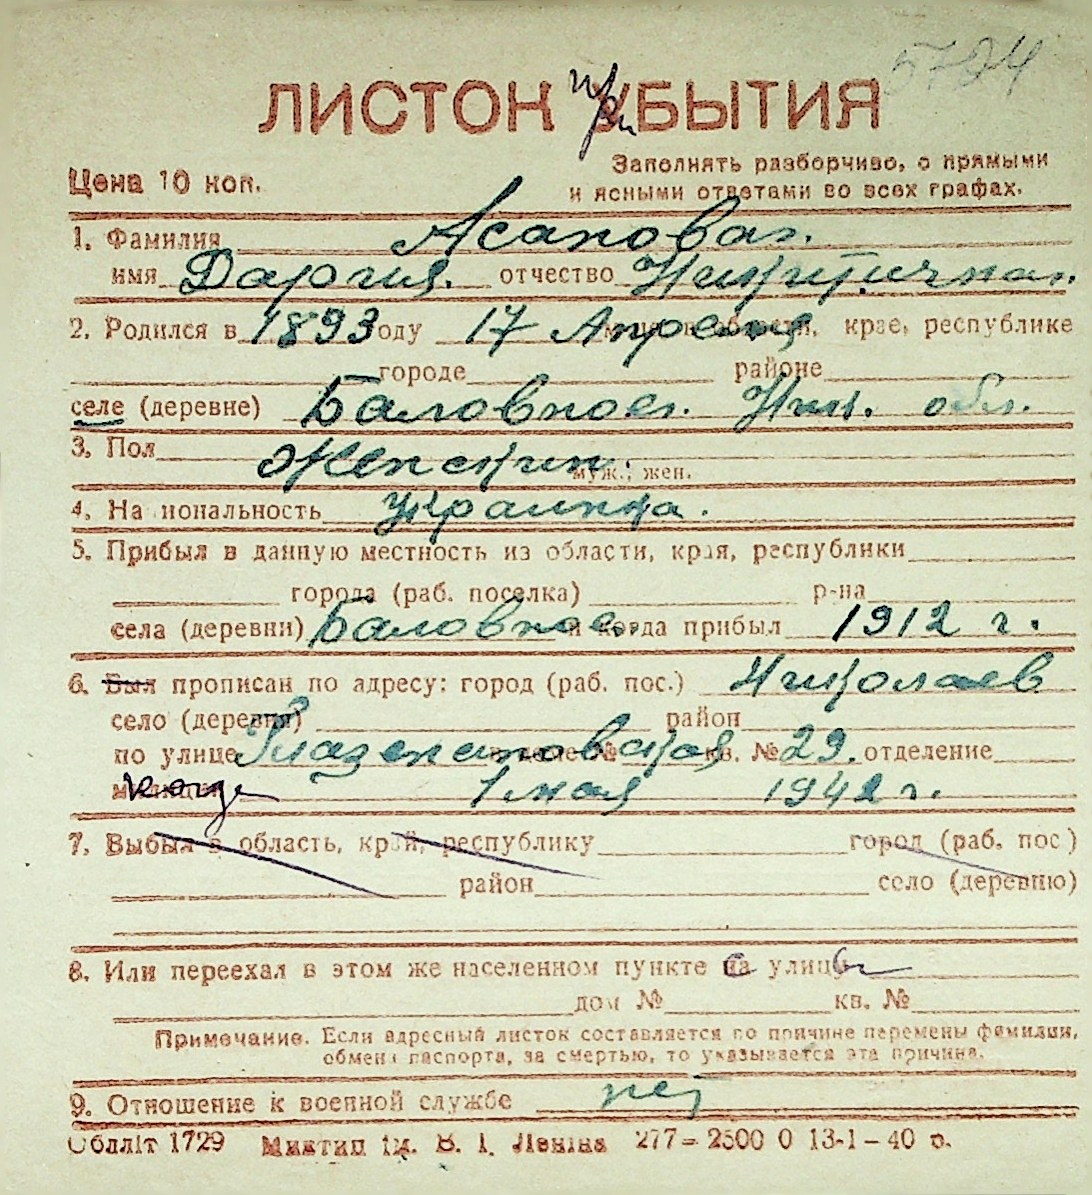 5724
ЛИСТОН при УБЫТИЯ
Заполнять разборчиво, с прямыми
Цена 10 коп.
и ясными ответами во всех графах.
1. Фамилия Асаповая.
имя Дария. отчество
2. Родился в 1893 году 17 Апреля месяца в области, крае, республике
городе районе
селе (деревне) Баловное. Ник. обл.
3. Пол Женский.
муж., жен.
4. На иональность Украинка.
5. Прибыл в данную местность из области, края, республики
города (раб. поселка) р-на
села (деревни) Баловное. и когда прибыл 1912 г.
6. Был прописан по адресу: город (раб. пос.) Николаев
село (деревня) район
по улице Глазенаповская кв. № 29. отделение
когда 1 мая 1942 г.
7. Выбыл в область, край, республику город (раб. пос.)
район село (деревню)
8. Или переехал в этом же населенном пункте с улицы
дом № кв. №
Примечание. Если адресный листок составляется по причине перемены фамилии,
обмена паспорта, за смертью, то указывается эта причина.
9. Отношение к военной службе нет
Обллiт 1729 Миктип iм. В. I. Ленiна 277–2500 0 13-1–40 р.